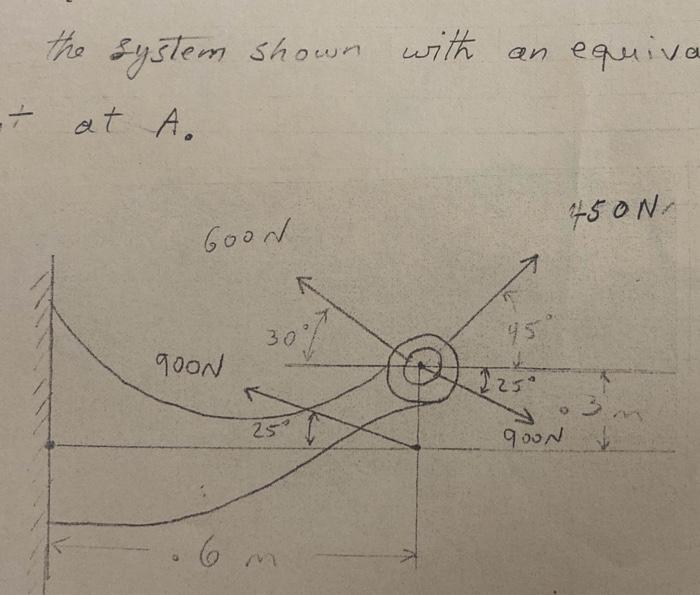 the system shown with an equiva
at A.
450N
600N
30°
45°
900N
25°
25°
.3 m
900N
.6 m